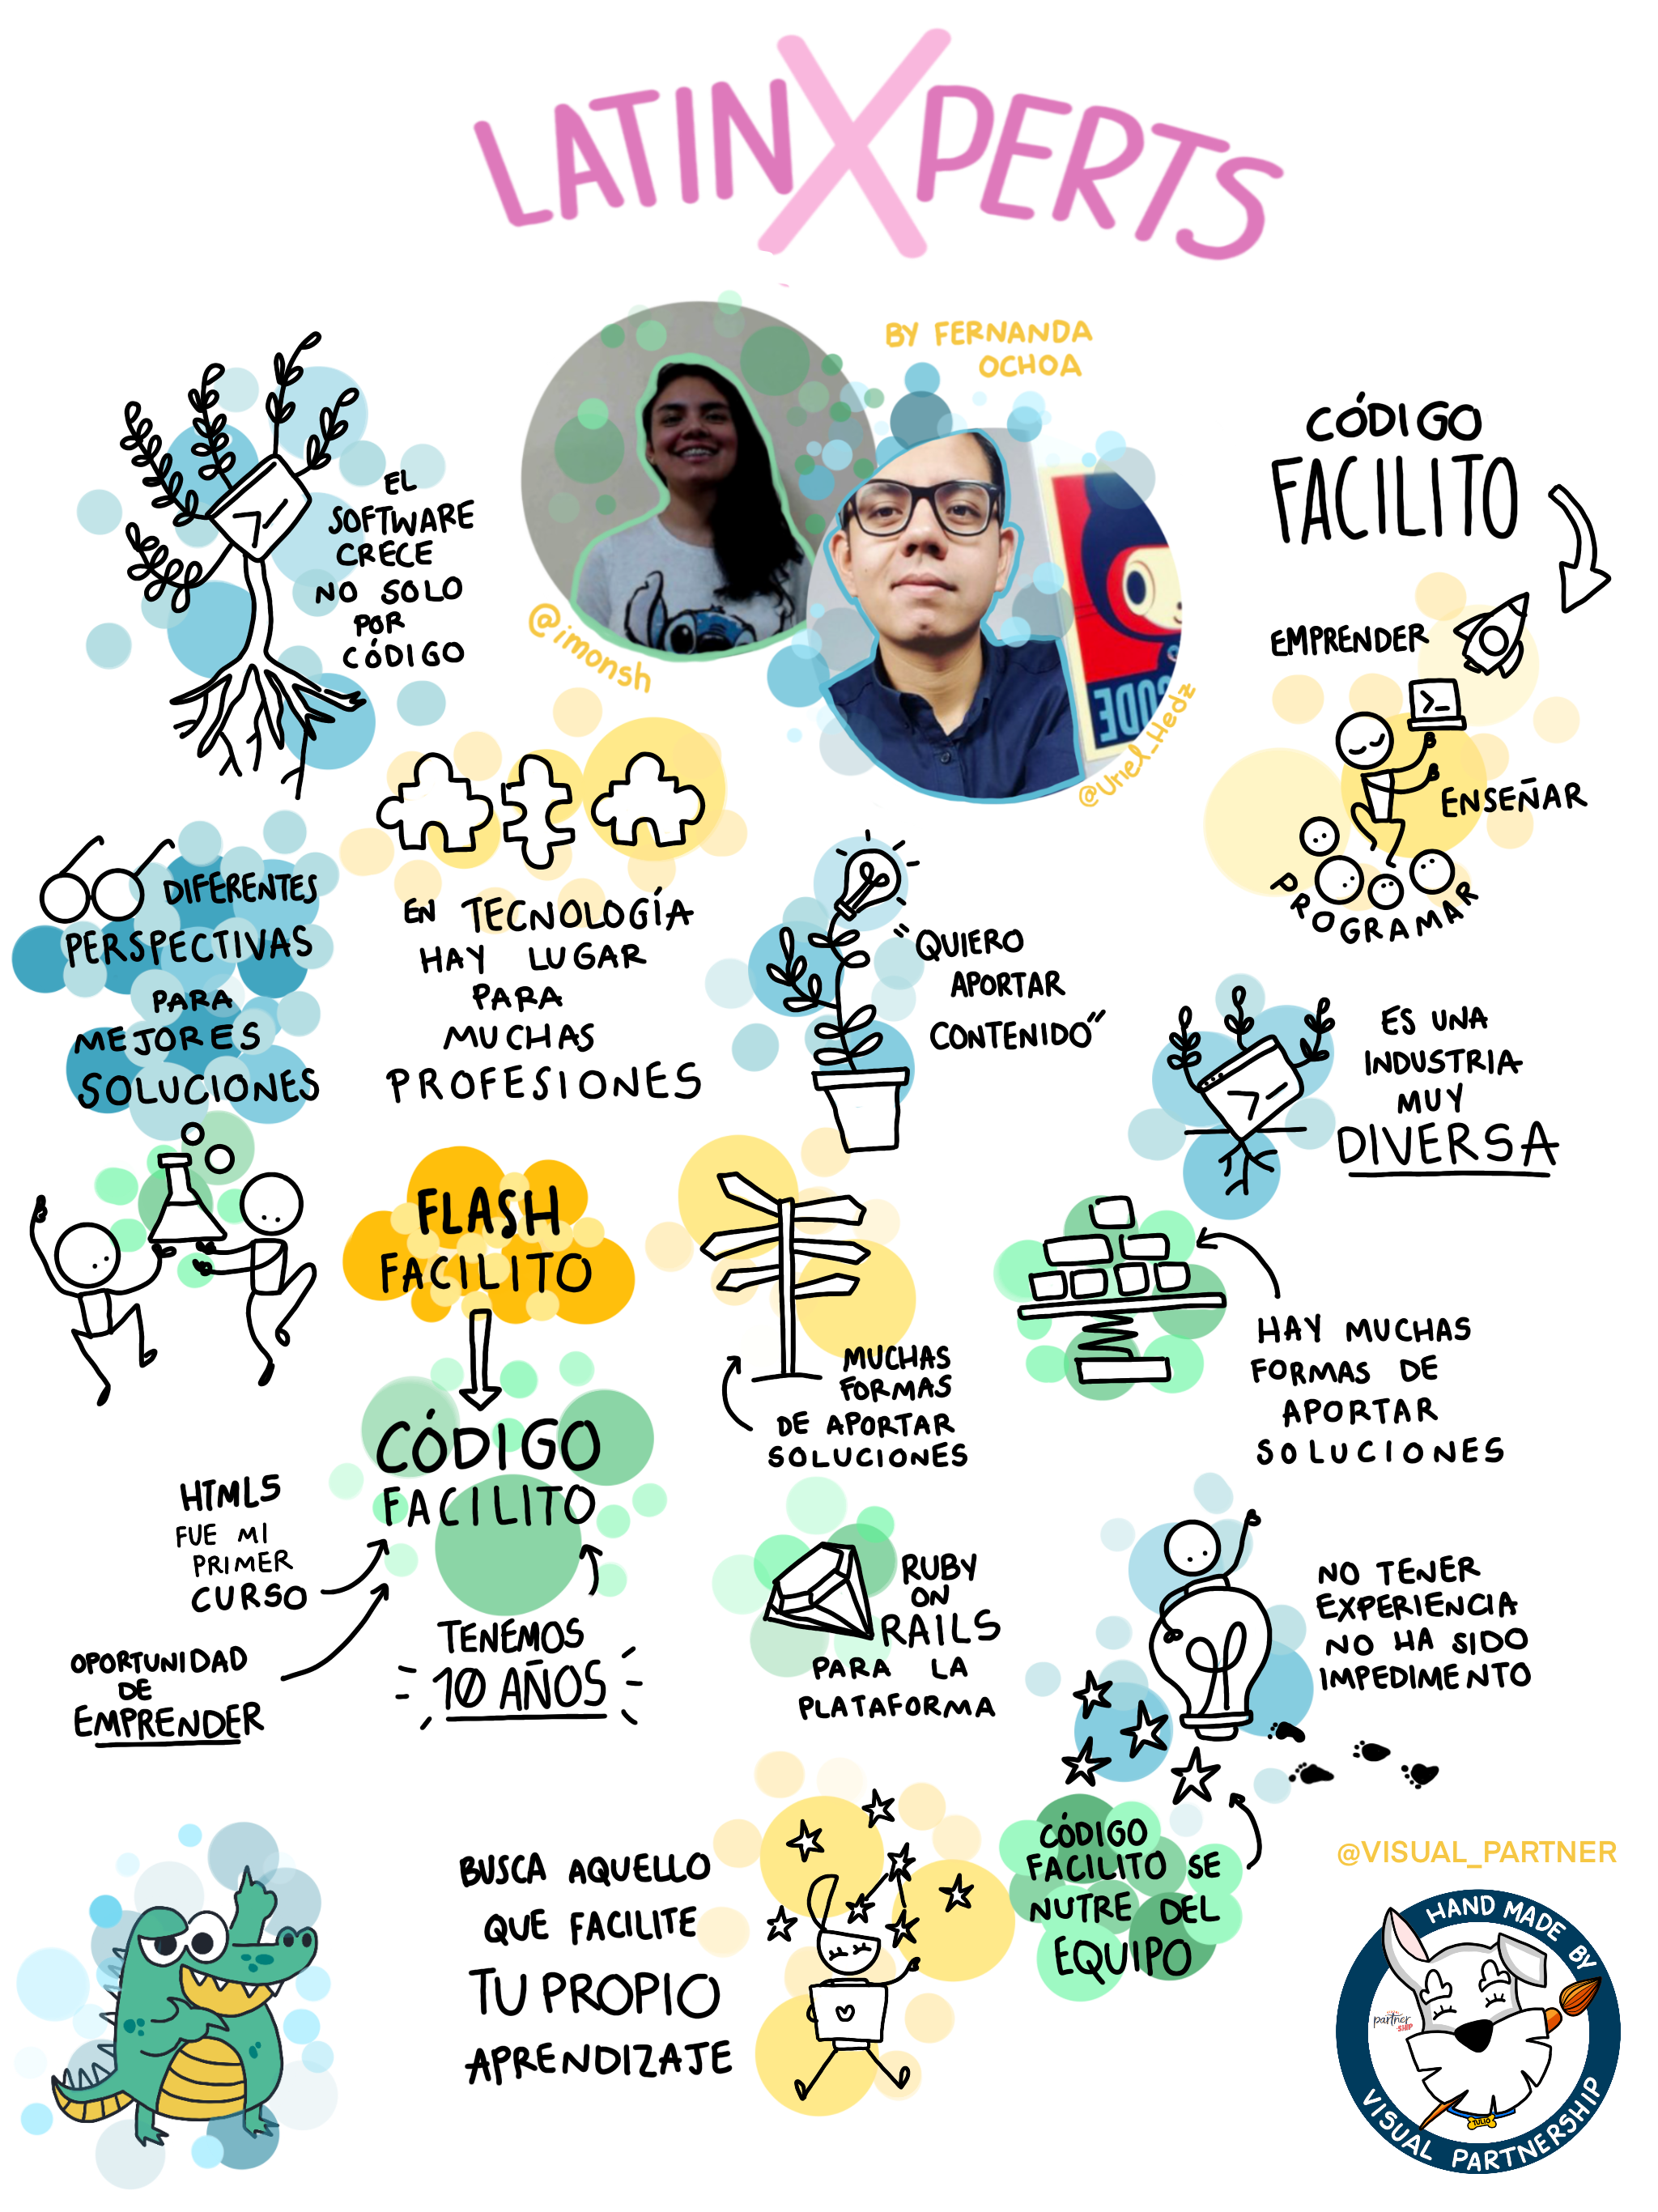 LATINXPERTS
BY FERNANDA
OCHOA
@imonsh
@Uriel_Hedz
CODE
EL
SOFTWARE
CRECE
NO SOLO
POR
CÓDIGO
CÓDIGO
FACILITO
EMPRENDER
ENSEÑAR
PROGRAMAR
DIFERENTES
PERSPECTIVAS
PARA
MEJORES
SOLUCIONES
EN TECNOLOGÍA
HAY LUGAR
PARA
MUCHAS
PROFESIONES
"QUIERO
APORTAR
CONTENIDO"
ES UNA
INDUSTRIA
MUY
DIVERSA
FLASH
FACILITO
CÓDIGO
FACILITO
HTML5
FUE MI
PRIMER
CURSO
OPORTUNIDAD
DE
EMPRENDER
TENEMOS
10 AÑOS
MUCHAS
FORMAS
DE APORTAR
SOLUCIONES
HAY MUCHAS
FORMAS DE
APORTAR
SOLUCIONES
RUBY
ON
RAILS
PARA LA
PLATAFORMA
NO TENER
EXPERIENCIA
NO HA SIDO
IMPEDIMENTO
BUSCA AQUELLO
QUE FACILITE
TU PROPIO
APRENDIZAJE
CÓDIGO
FACILITO SE
NUTRE DEL
EQUIPO
@VISUAL_PARTNER
HAND MADE BY
partner
SHIP
TULIO
VISUAL PARTNERSHIP